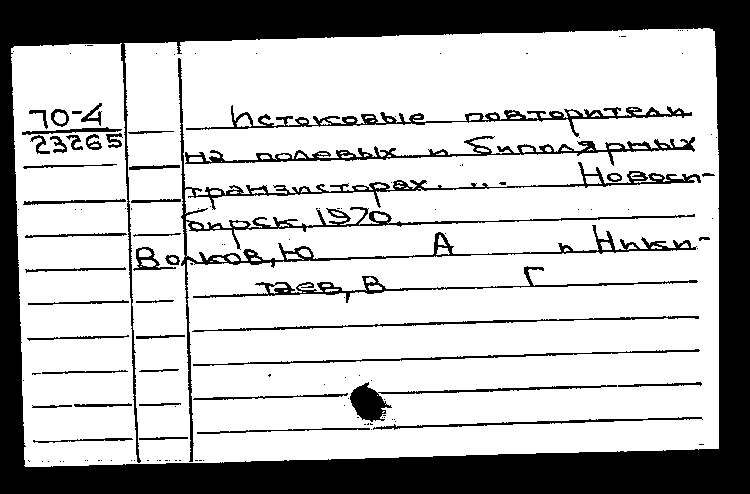 70-4
23265
Истоковые повторители
на полевых и биполярных
транзисторах. ... Новоси-
бирск, 1970.
Волков, Ю А и Ники-
таев, В Г